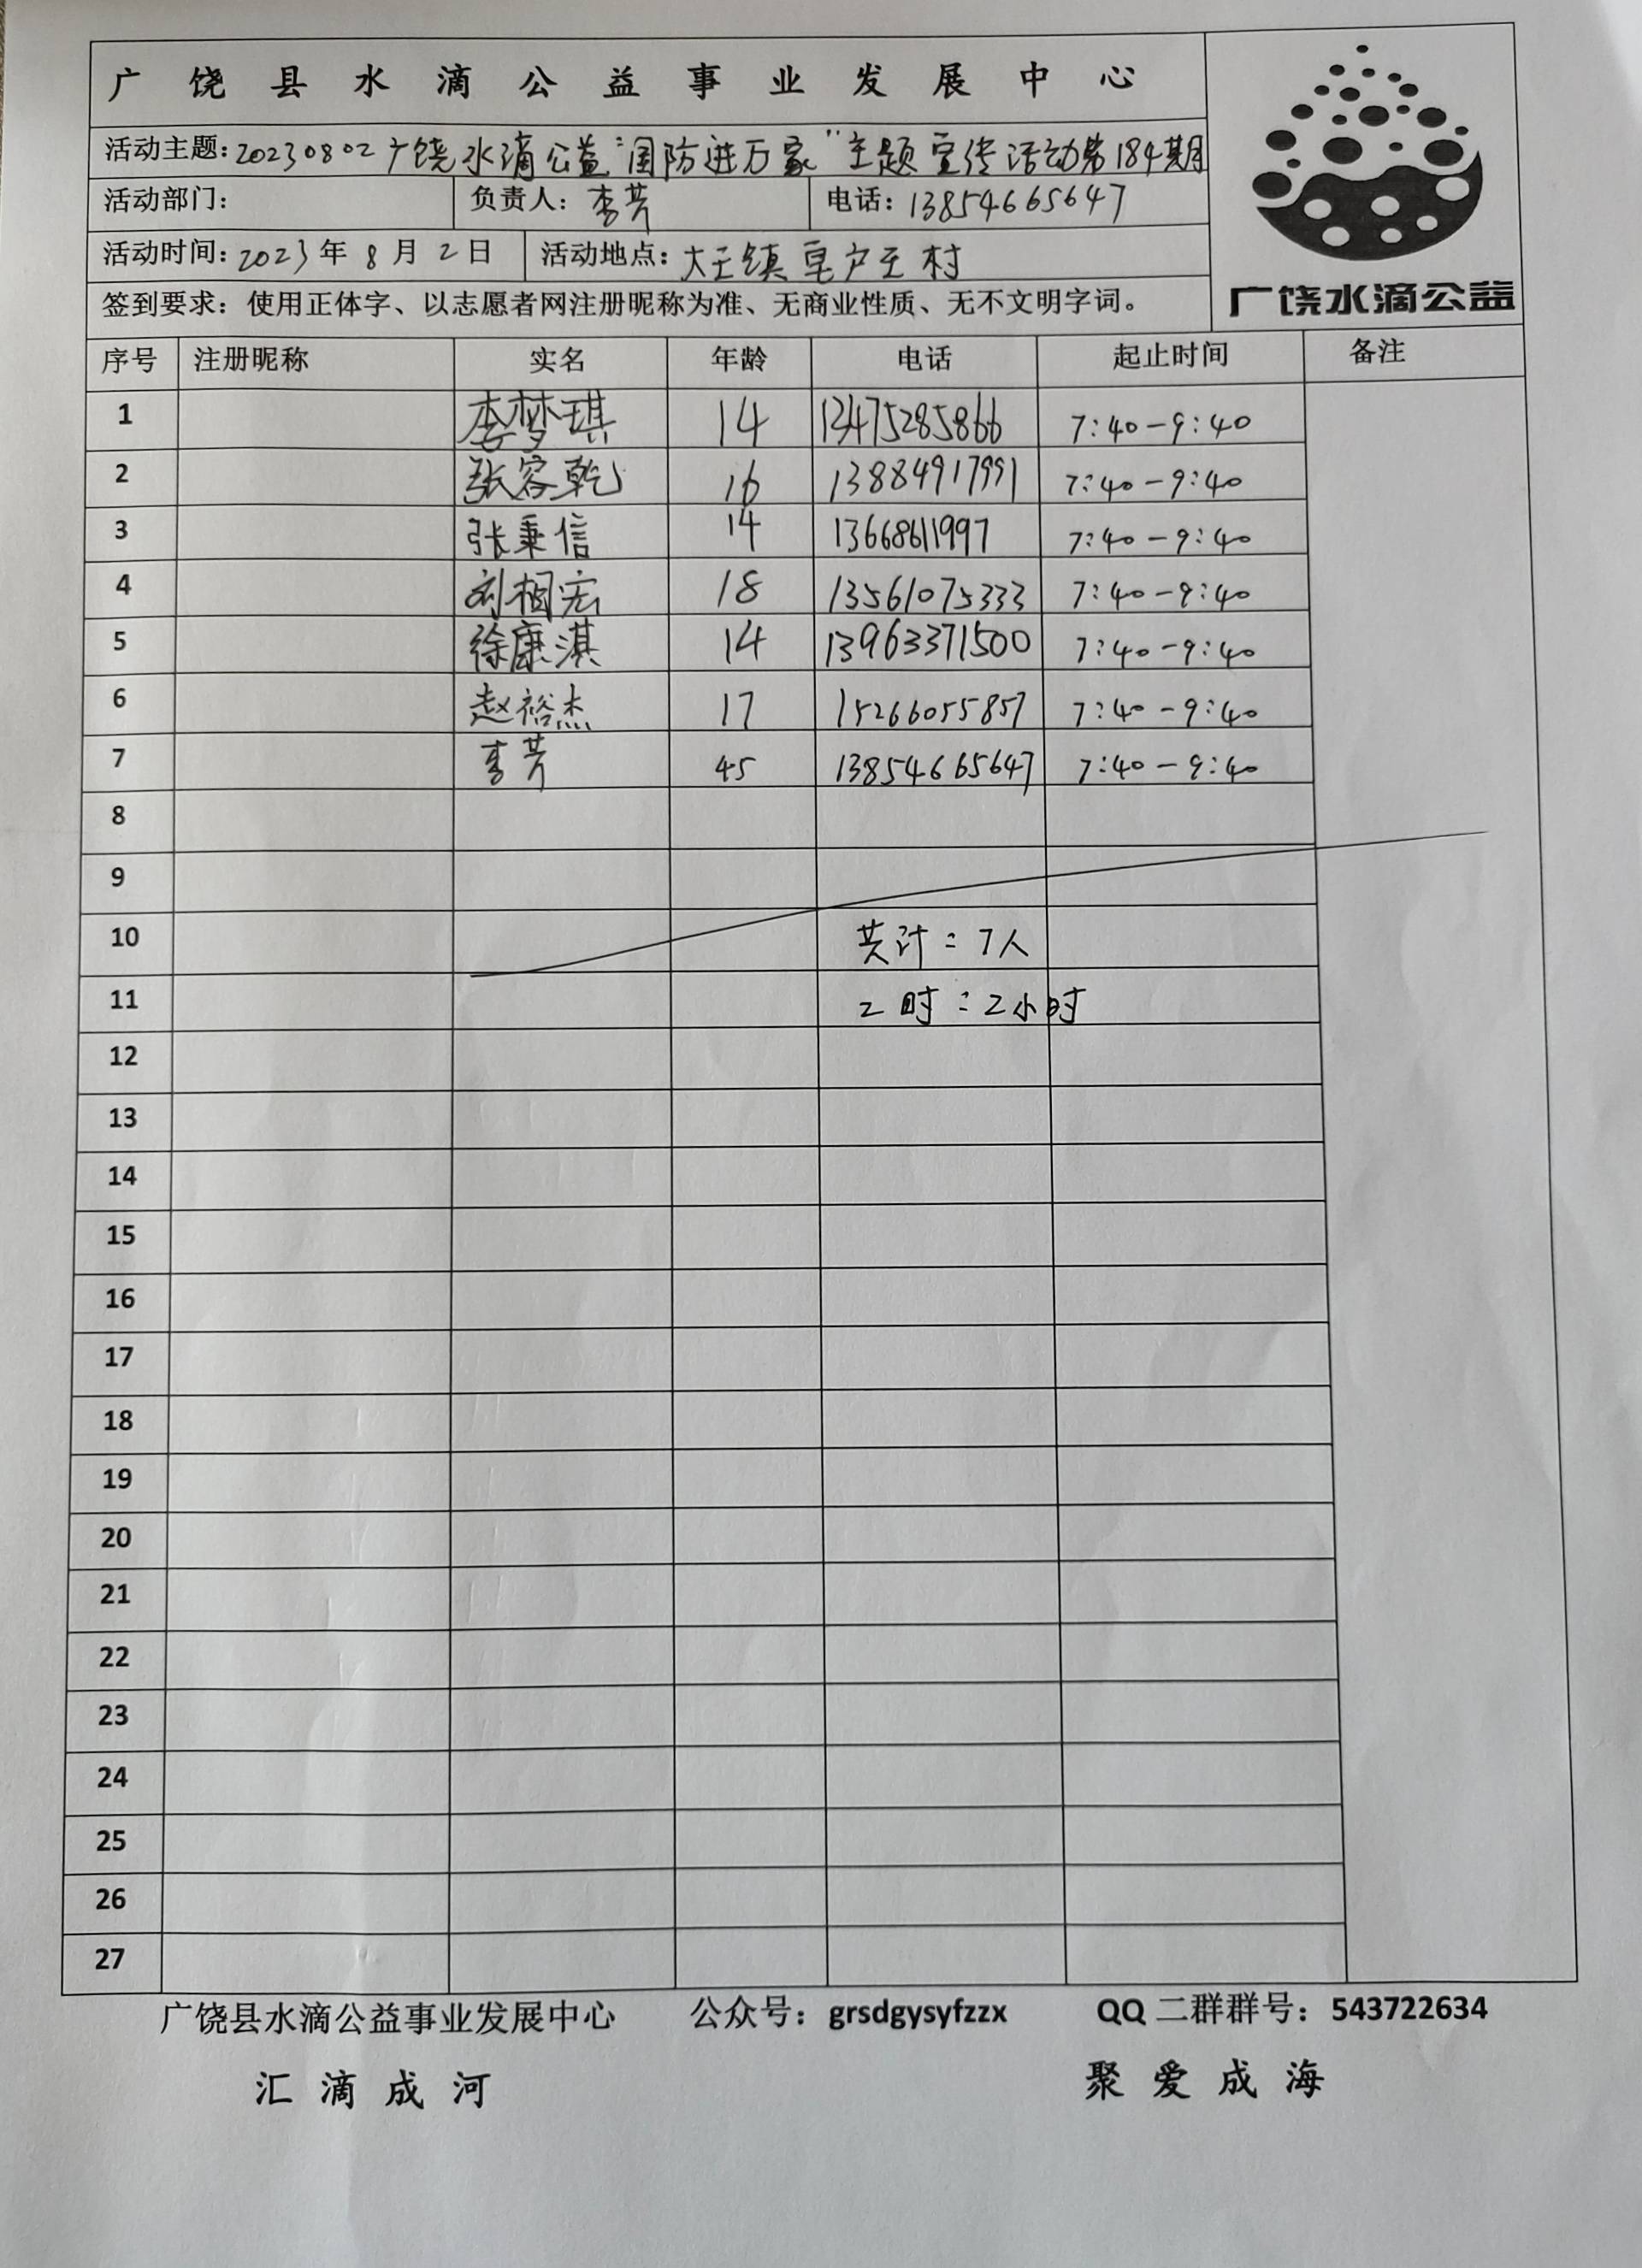 广饶县水滴公益事业发展中心
活动主题：20230802广饶水滴公益"国防进万家"主题宣传活动第184期
活动部门： 负责人：李芳 电话：13854665647
活动时间：2023年8月2日 活动地点：大王镇皂户王村
签到要求：使用正体字、以志愿者网注册昵称为准、无商业性质、无不文明字词。
广饶水滴公益
序号 注册昵称 实名 年龄 电话 起止时间 备注
1 李梦琪 14 13475285866 7:40-9:40
2 张容乾 16 13884917991 7:40-9:40
3 张秉信 14 13668611997 7:40-9:40
4 刘桐宏 18 13561075333 7:40-9:40
5 徐康淇 14 13963371500 7:40-9:40
6 赵裕杰 17 15266055857 7:40-9:40
7 李芳 45 13854665647 7:40-9:40
8
9
10 共计：7人
11 工时：2小时
12
13
14
15
16
17
18
19
20
21
22
23
24
25
26
27
广饶县水滴公益事业发展中心 公众号：grsdgysyfzzx QQ二群群号：543722634
汇滴成河 聚爱成海